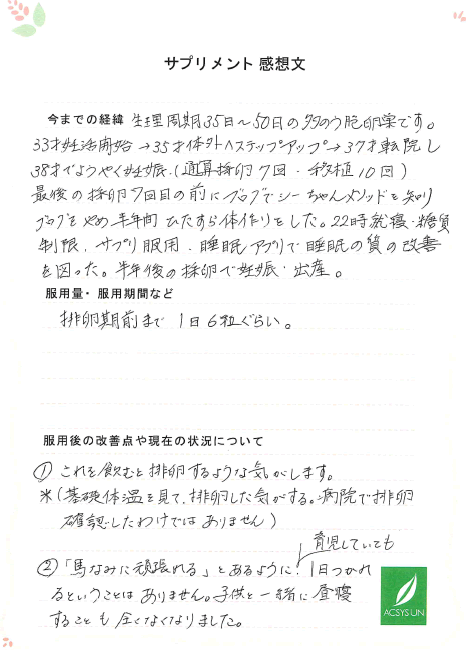 サプリメント 感想文
今までの経緯 生理周期35日〜50日の多のう胞卵巣です。
33才妊活開始→35才体外へステップアップ→37才転院し
38才でようやく妊娠.(通算採卵7回・移植10回)
最後の採卵7回目の前にブログでシーちゃんメソッドを知り
ブログをやめ半年間ひたすら体作りをした。22時就寝・糖質
制限.サプリ服用.睡眠アプリで睡眠の質の改善
を図った。半年後の採卵で妊娠・出産。
服用量・服用期間など
排卵期前まで 1日6粒ぐらい。
服用後の改善点や現在の状況について
① これを飲むと排卵するような気がします。
※(基礎体温を見て、排卵した気がする。病院で排卵
確認したわけではありません)
育児していても
②「馬なみに頑張れる」とあるように!1日つかれ
るということはありません。子供と一緒に昼寝
することも全くなくなりました。
ACSYSUN